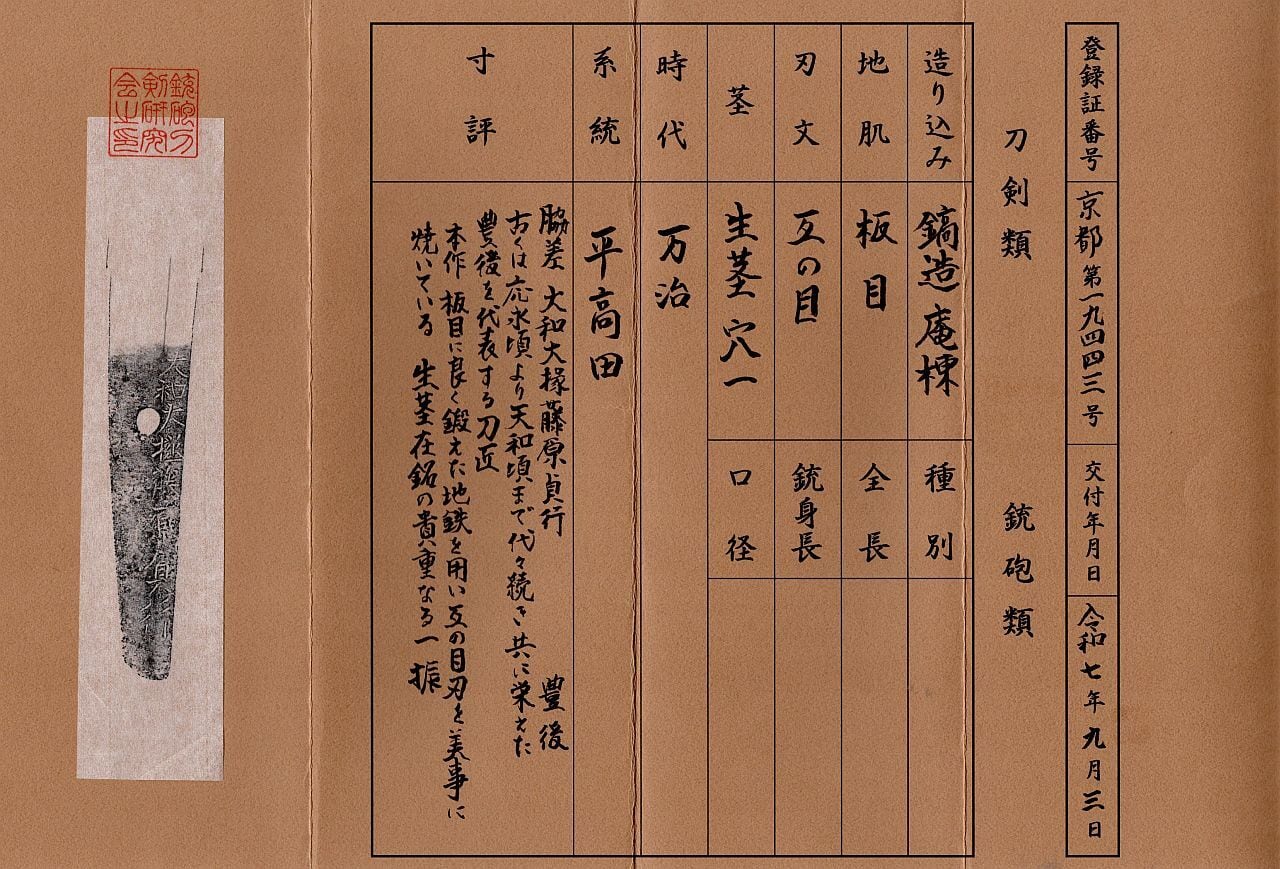 登録証番号 京都 第一九四四三号 交付年月日 令和七年九月三日
刀剣類 銃砲類
造り込み 鎬造庵棟 種別
地肌 板目 全長
刃文 互の目 銃身長
茎 生茎 穴一 口径
時代 万治
系統 平高田
寸評
脇差 大和大掾藤原貞行 豊後
古くは応永頃より天和頃まで代々続き共に栄えた
豊後を代表する刀匠
本作 板目に良く鍛えた地鉄を用い互の目刃を美事に
焼いている 生茎在銘の貴重なる一振
銃砲刀
剣研究
会之印
大和大掾藤原貞行